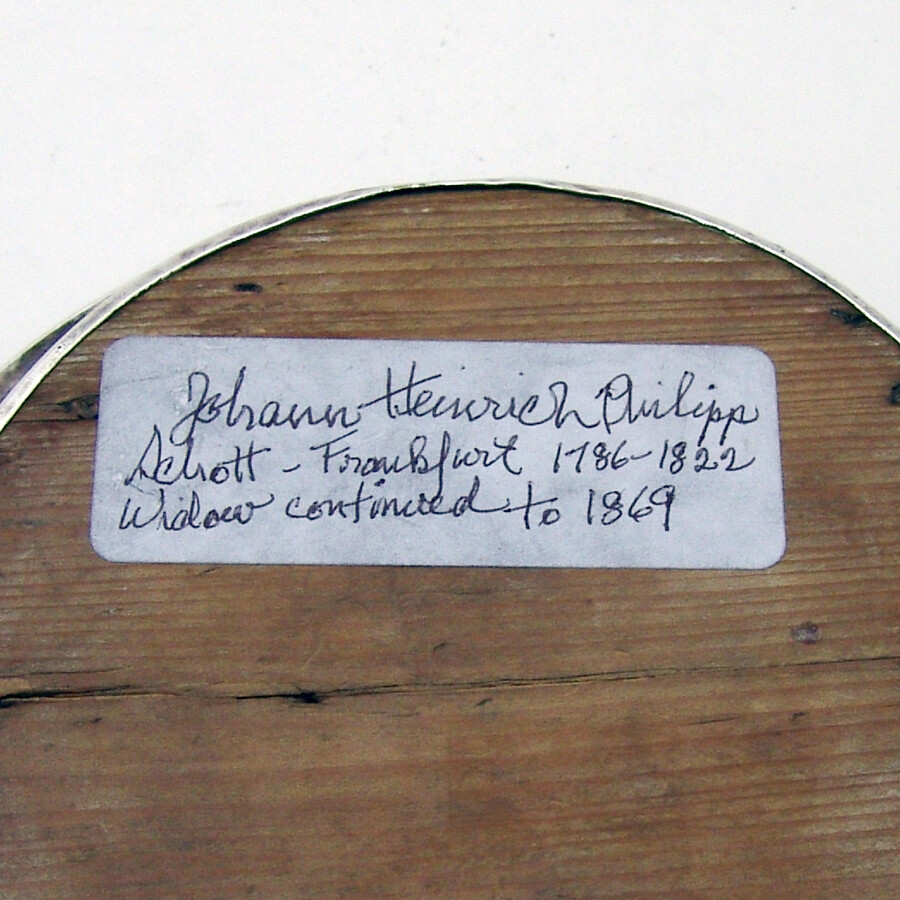 Johann Heinrich Philipp
Schott - Frankfurt 1786-1822
Widow continued to 1869